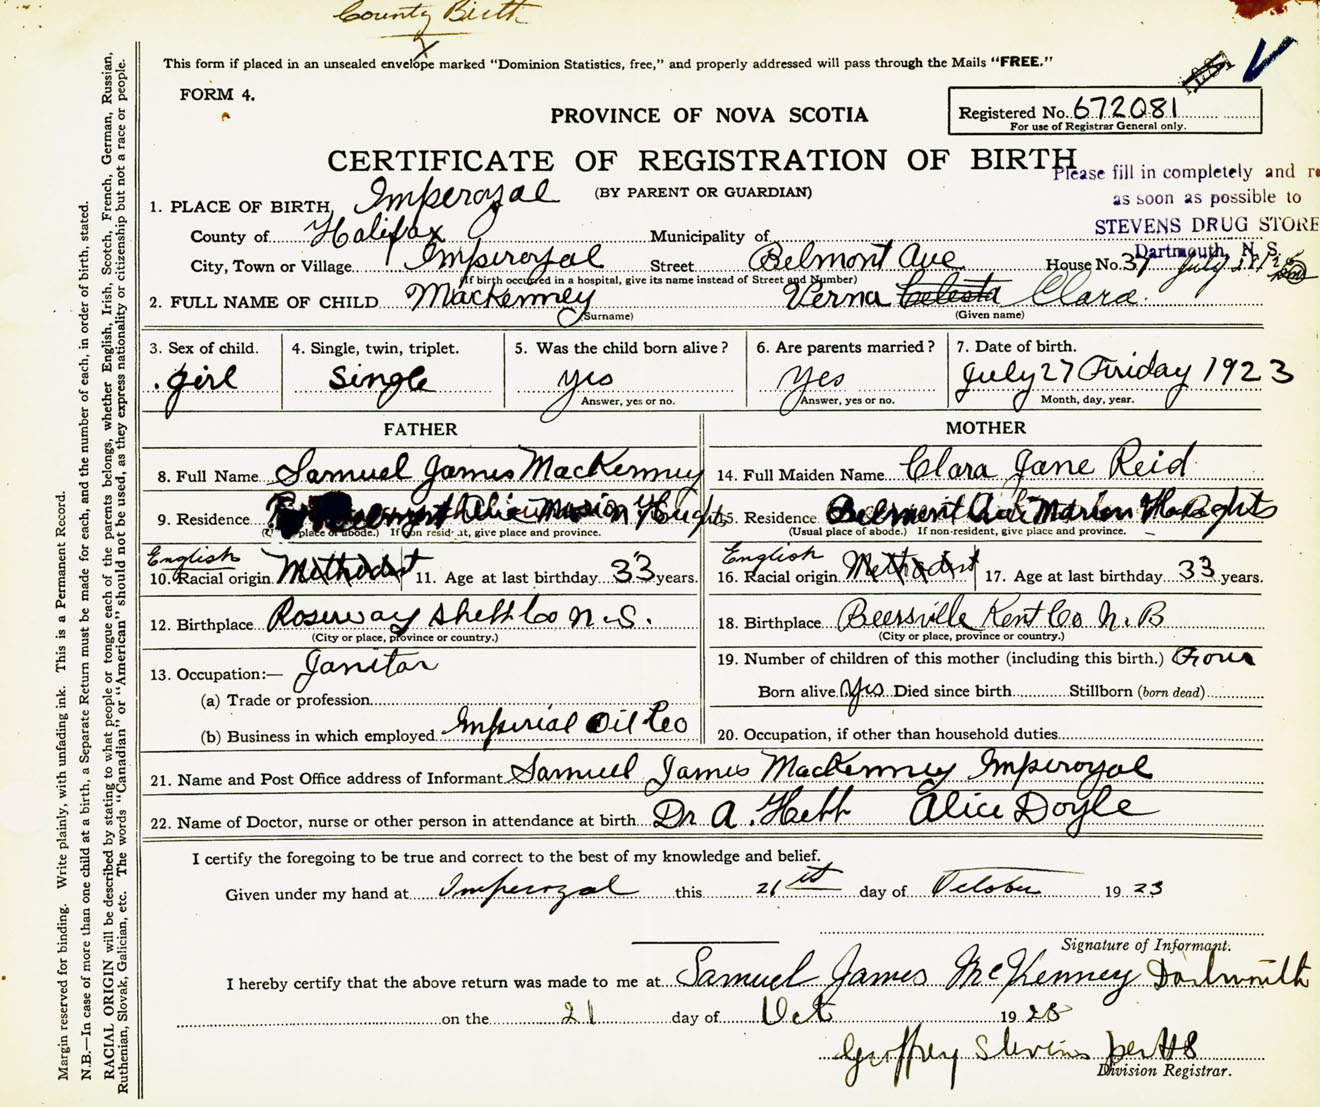 County Birth
X
This form if placed in an unsealed envelope marked "Dominion Statistics, free," and properly addressed will pass through the Mails "FREE."
FORM 4.
PROVINCE OF NOVA SCOTIA
Registered No. 672081
For use of Registrar General only.
CERTIFICATE OF REGISTRATION OF BIRTH
(BY PARENT OR GUARDIAN)
Please fill in completely and re
as soon as possible to
STEVENS DRUG STORE
Dartmouth, N. S.
1. PLACE OF BIRTH Imperoyal
County of Halifax Municipality of
City, Town or Village Imperoyal Street Belmont Ave House No. 37 July
(If birth occured in a hospital, give its name instead of Street and Number)
2. FULL NAME OF CHILD MacKenney Verna Celesta Clara.
(Surname) (Given name)
3. Sex of child. 4. Single, twin, triplet. 5. Was the child born alive? 6. Are parents married? 7. Date of birth.
girl Single yes yes July 27 Friday 1923
Answer, yes or no. Answer, yes or no. Month, day, year.
FATHER MOTHER
8. Full Name Samuel James MacKenney 14. Full Maiden Name Clara Jane Reid
9. Residence Belmont 15. Residence Belmont
(Usual place of abode.) If non resident, give place and province. (Usual place of abode.) If non-resident, give place and province.
English English
10. Racial origin Methodist 11. Age at last birthday 33 years. 16. Racial origin Methodist 17. Age at last birthday 33 years.
12. Birthplace Roseway Shelb Co N.S. 18. Birthplace Beersville Kent Co N.B
(City or place, province or country.) (City or place, province or country.)
13. Occupation:— Janitor 19. Number of children of this mother (including this birth.) Four
(a) Trade or profession Born alive Yes Died since birth Stillborn (born dead)
(b) Business in which employed Imperial Oil Co 20. Occupation, if other than household duties
21. Name and Post Office address of Informant Samuel James MacKenney Imperoyal
22. Name of Doctor, nurse or other person in attendance at birth Dr A. Hebb Alice Doyle
I certify the foregoing to be true and correct to the best of my knowledge and belief.
Given under my hand at Imperoyal this 21st day of October 1923
Signature of Informant.
I hereby certify that the above return was made to me at Samuel James McKenney Dartmouth
on the 21 day of Oct 19 28
Geoffrey Stevens per HS
Division Registrar.
Margin reserved for binding. Write plainly, with unfading ink. This is a Permanent Record.
N.B.—In case of more than one child at a birth, a Separate Return must be made for each, and the number of each, in order of birth, stated.
RACIAL ORIGIN will be described by stating to what people or tongue each of the parents belongs, whether English, Irish, Scotch, French, German, Russian,
Ruthenian, Slovak, Galician, etc. The words "Canadian" or "American" should not be used, as they express nationality or citizenship but not a race or people.